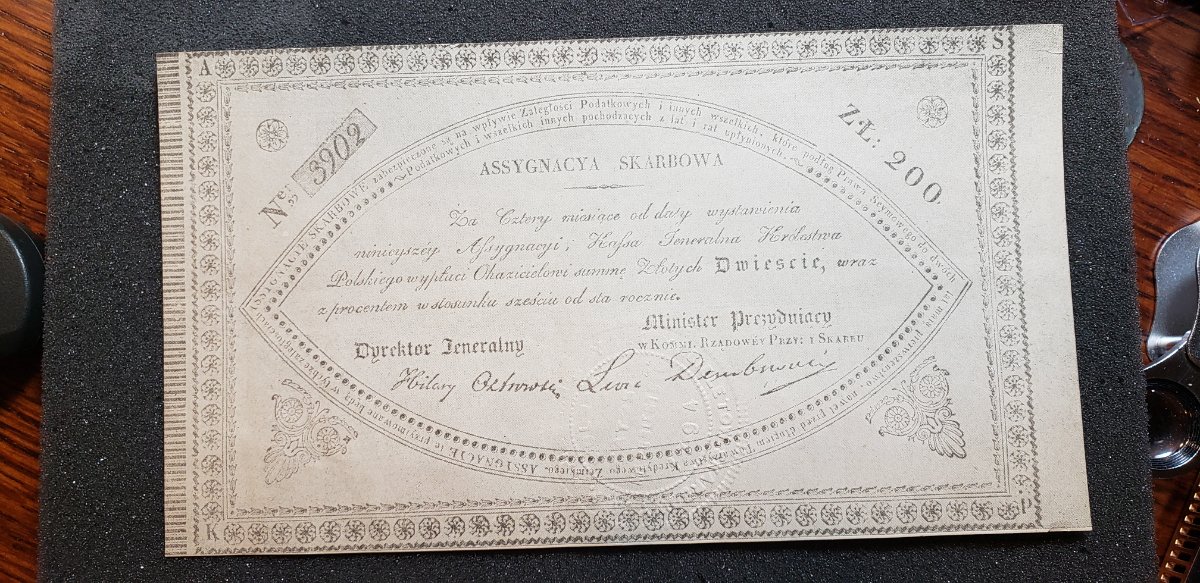 A
S
Nr: 3902
ZŁ: 200.
ASSYGNACIE SKARBOWE zabezpieczone są na wpływie Zaległości Podatkowych i innych wszelkich, które podług Prawa Seymowego do dwóch lat
Podatkowych i wszelkich innych pochodzących z lat i rat upłynionych.
ASSYGNACYA SKARBOWA
Za Cztery miesiące od daty wystawienia
ninieyszéy Assygnacyi, Kassa Jeneralna Królestwa
Polskiego wypłaci Okazicielowi summę Złotych Dwieście, wraz
z procentem w stosunku sześciu od sta rocznie.
Minister Prezyduiący
w Kommi. Rządowéy Przy: i Skarbu
Dyrektor Jeneralny
Hilary Ostrowski
Dembowski
nawet przed długiem Towarzystwa Kredytowego Ziemskiego. ASSYGNACIE te przyimowane będą
K
P